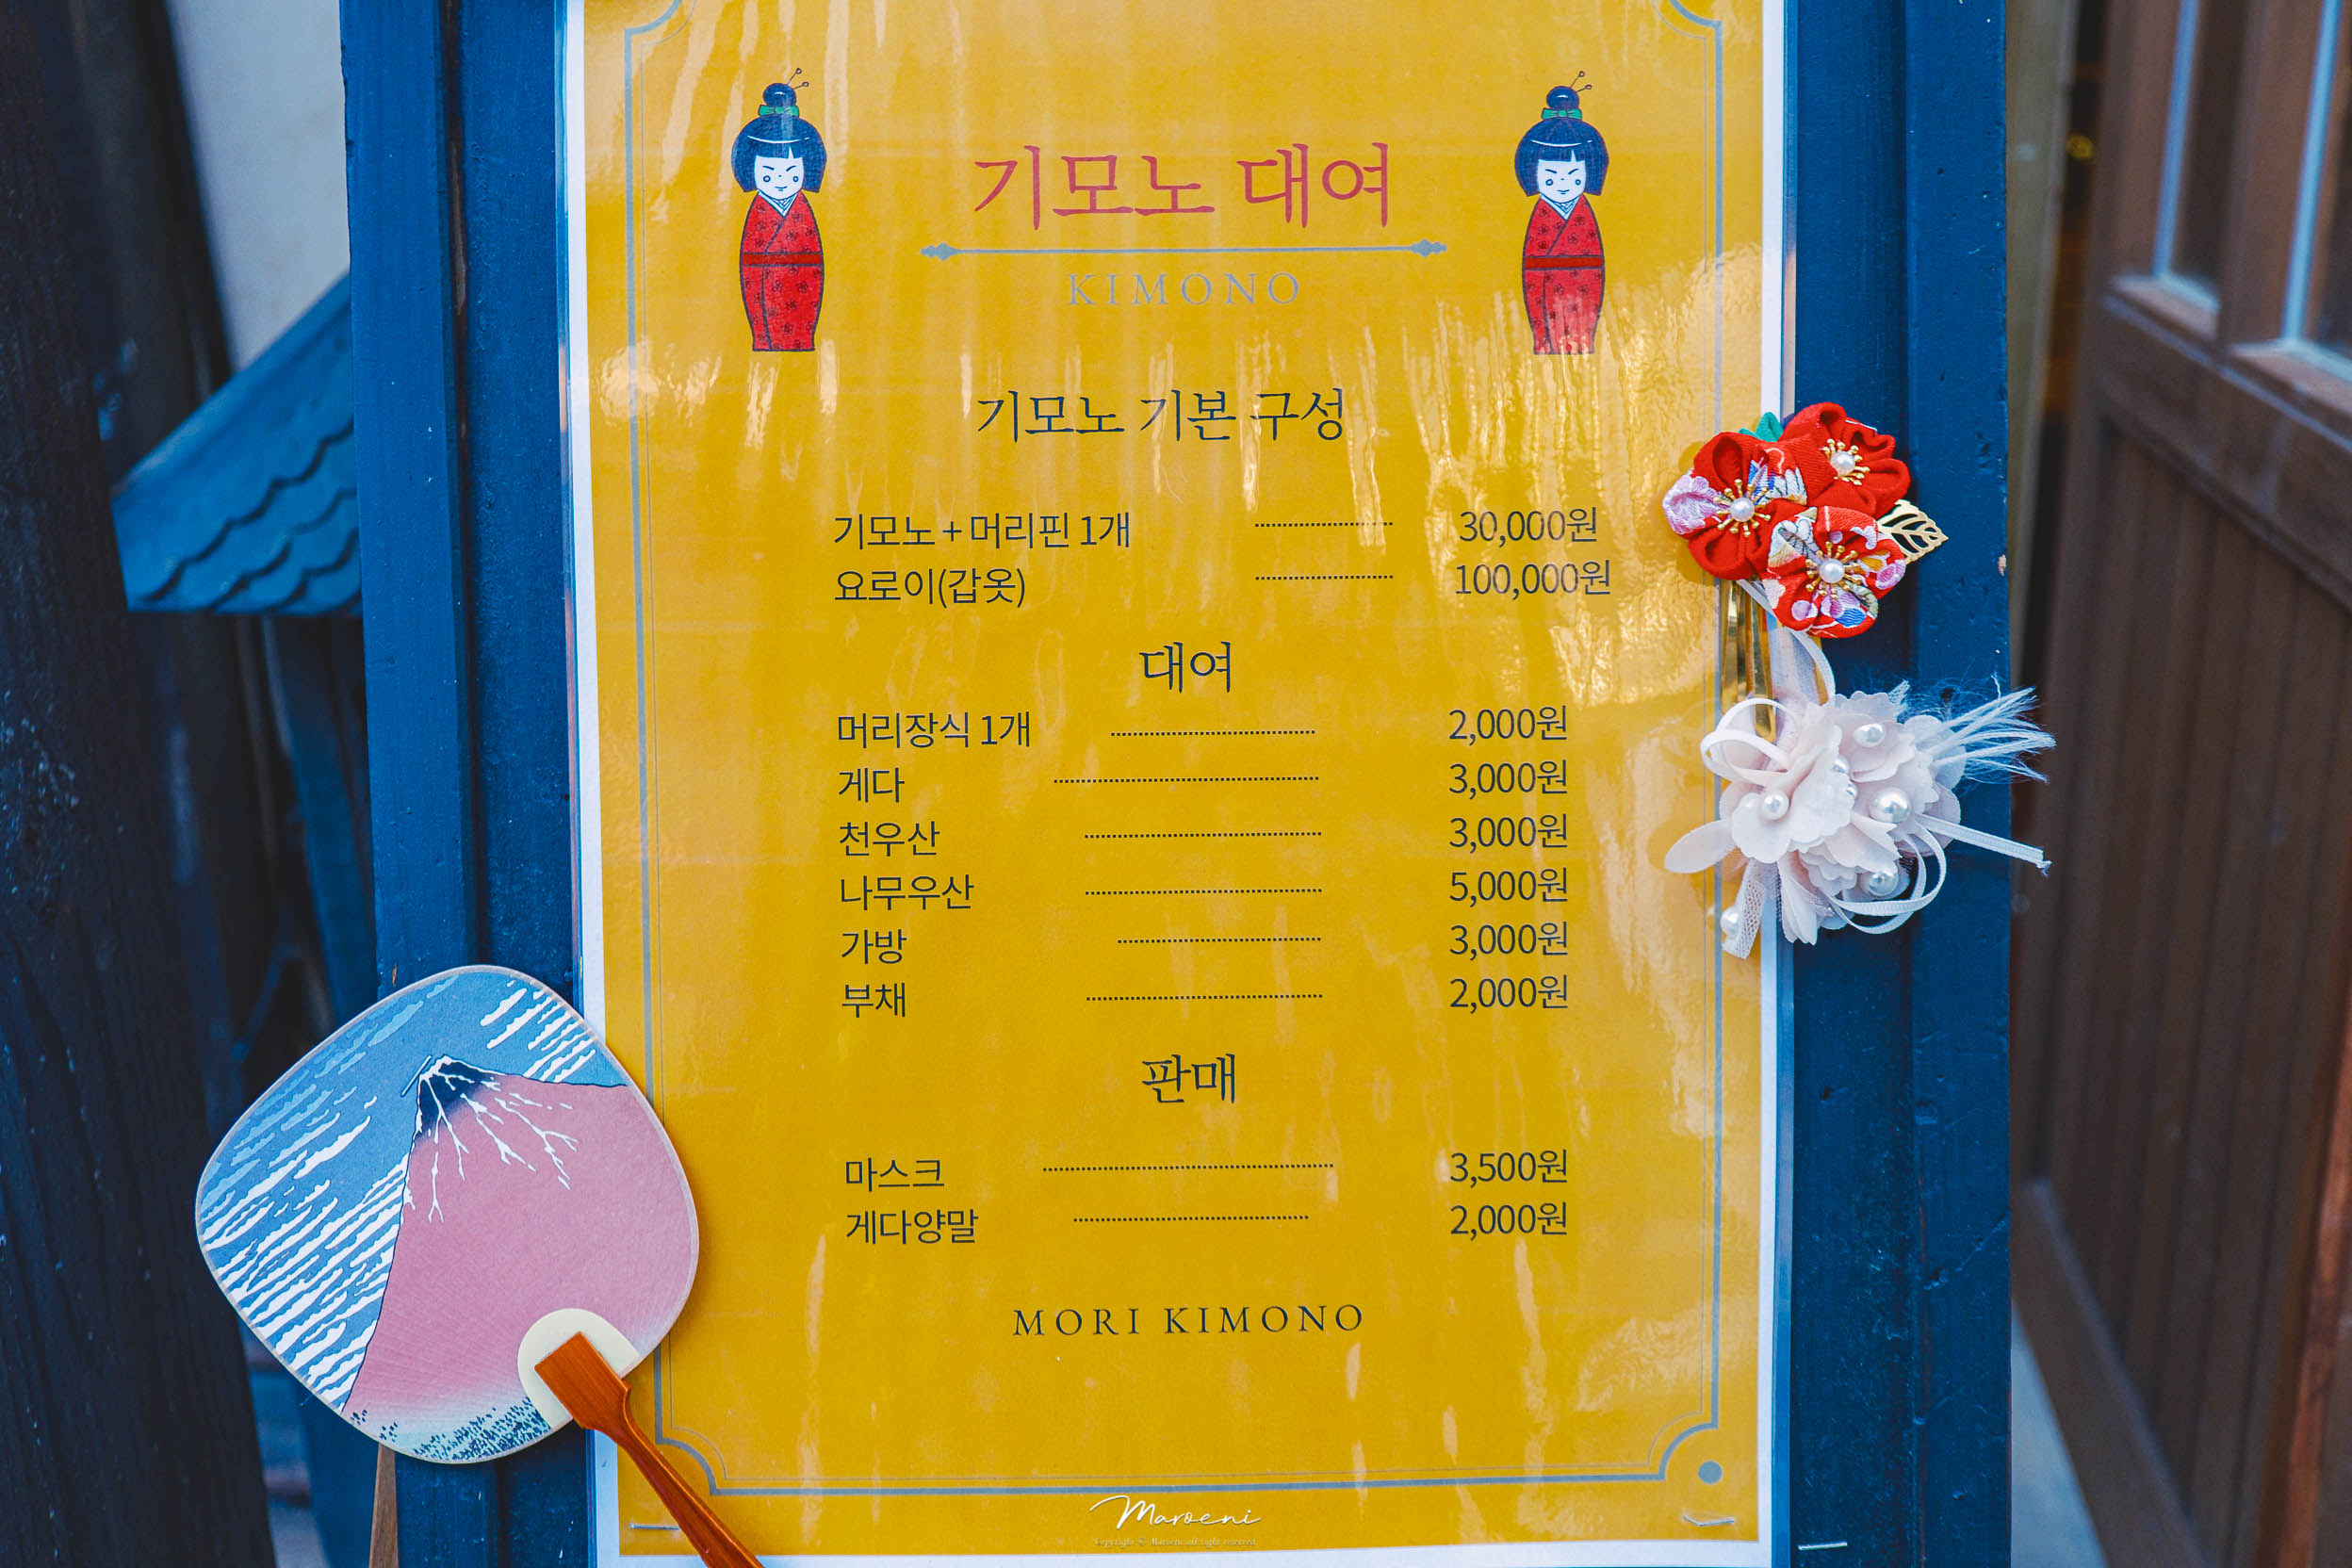 기모노 대여
KIMONO
기모노 기본 구성
기모노 + 머리핀 1개 30,000원
요로이(갑옷) 100,000원
대여
머리장식 1개 2,000원
게다 3,000원
천우산 3,000원
나무우산 5,000원
가방 3,000원
부채 2,000원
판매
마스크 3,500원
게다양말 2,000원
MORI KIMONO
Maroeni